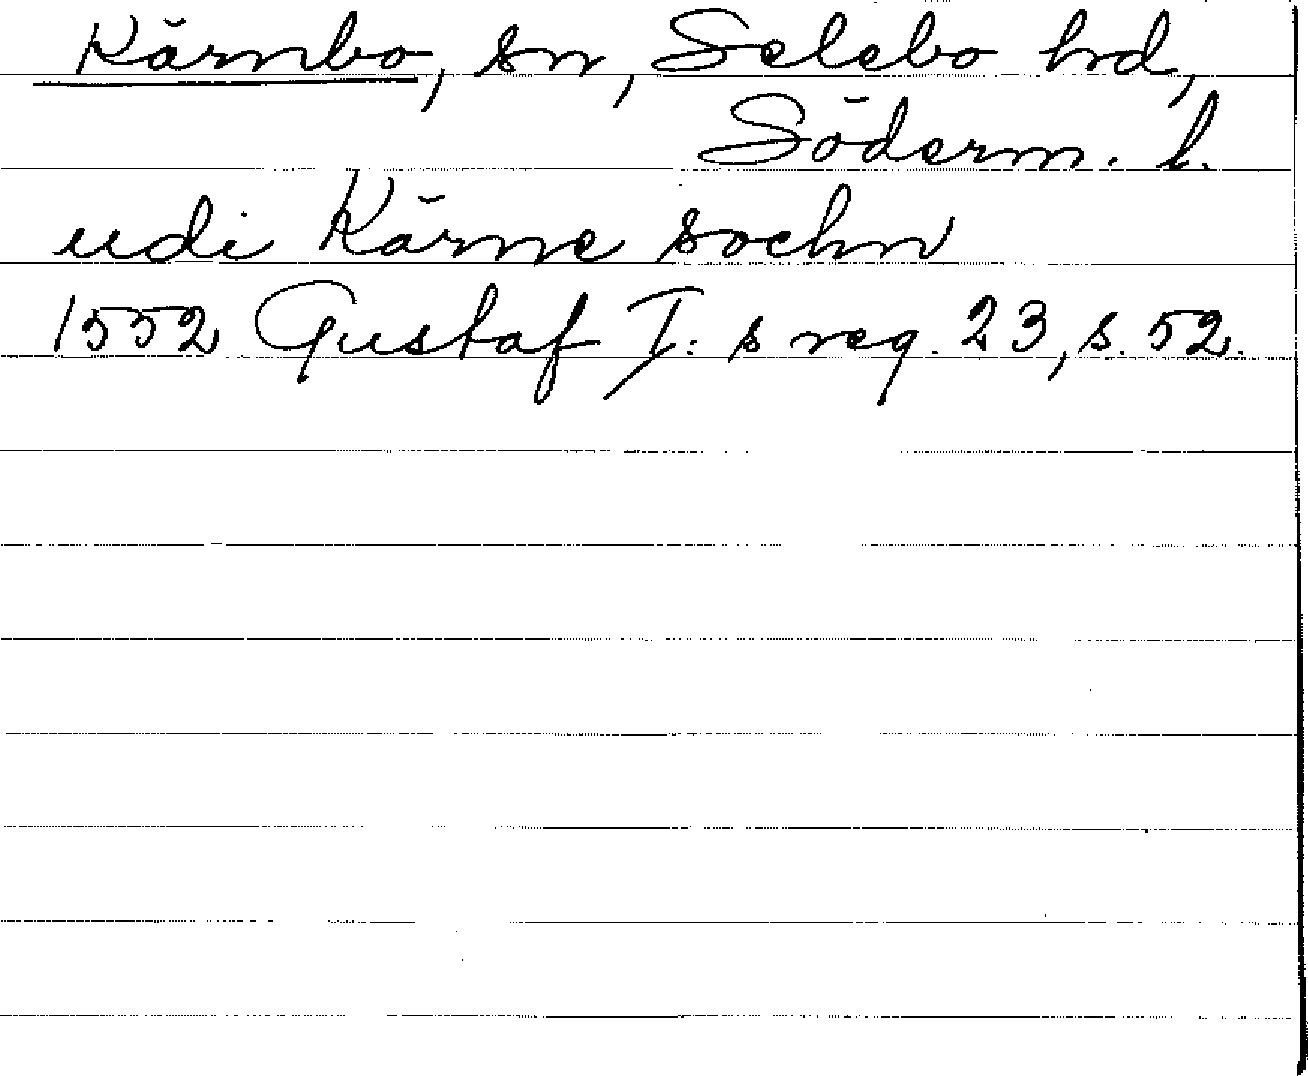 Kärnbo, sn, Selebo hd,
Söderm. l.
udi Kärne sochn
1552 Gustaf I: s reg. 23, s. 52.